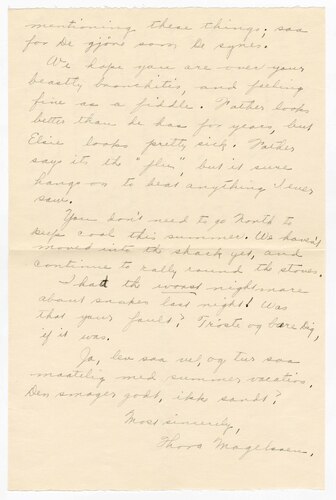 mentioning these things; saa
for De gjöre som De synes.
We hope you are over your
beastly bronchitis, and feeling
fine as a fiddle. Father looks
better than he has for years, but
Elsie looks pretty sick. Father
says its th "flu", but it sure
hangs on to beat anything I ever
saw.
You don't need to go North to
keep cool this summer. We haven't
moved into the shack yet, and
continue to rally round the stoves.
I had the worst nightmare
about snakes last night! Was
that your fault? Trøste og bære Dig,
if it was.
Ja, lev saa vel, og tur saa
maatelig med summer vacation.
Den smager godt, ikk sandt?
Most sincerely,
Thora Magelssen.